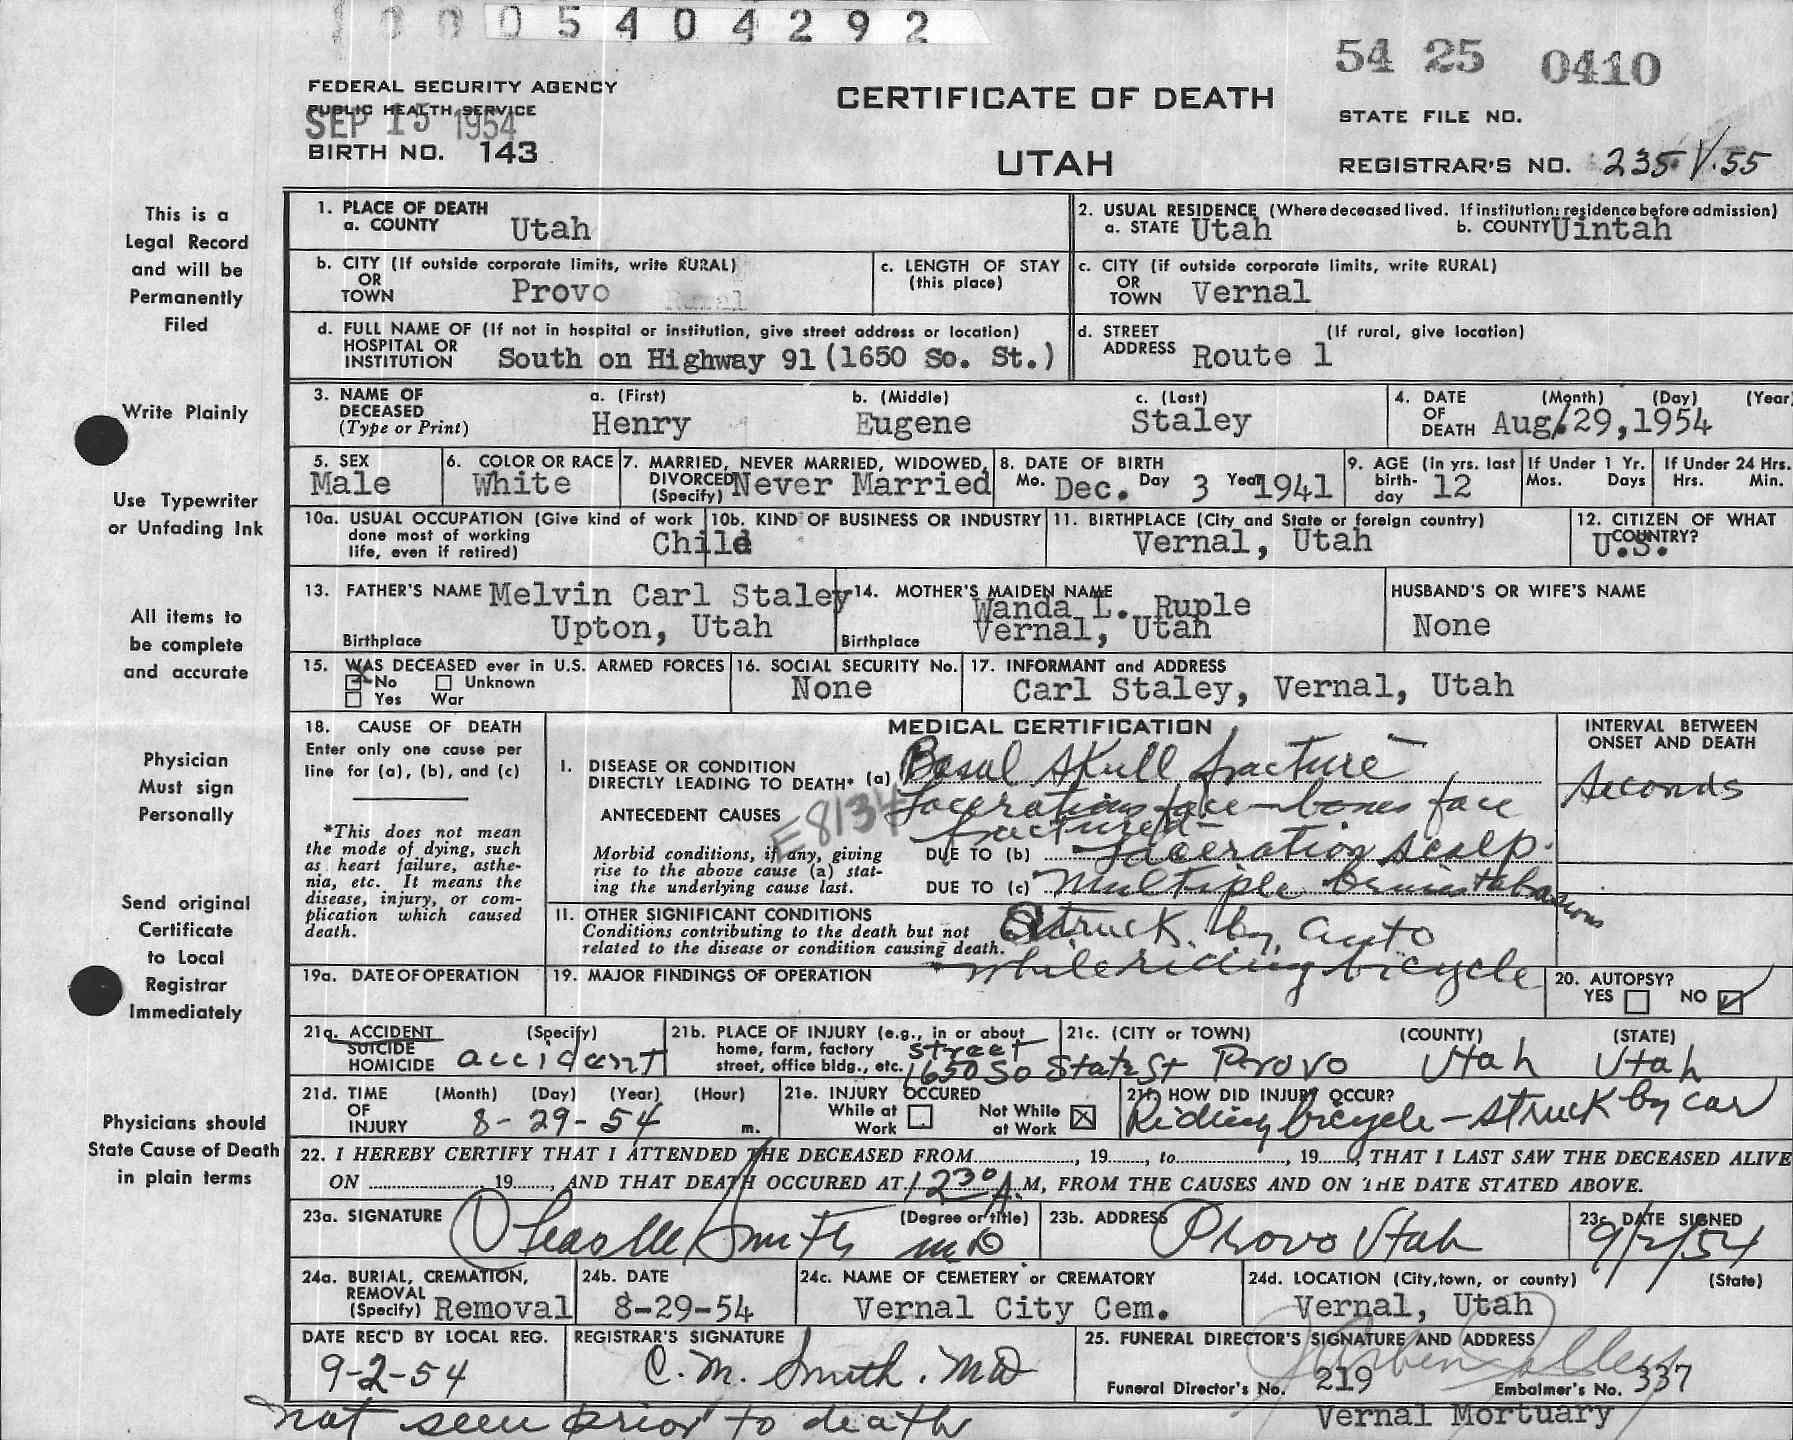 10005404292
54 25 0410
FEDERAL SECURITY AGENCY
PUBLIC HEALTH SERVICE
SEP 15 1954
BIRTH NO. 143
CERTIFICATE OF DEATH
UTAH
STATE FILE NO.
REGISTRAR'S NO. 235 V.55
This is a
Legal Record
and will be
Permanently
Filed
Write Plainly
Use Typewriter
or Unfading Ink
All items to
be complete
and accurate
Physician
Must sign
Personally
Send original
Certificate
to Local
Registrar
Immediately
Physicians should
State Cause of Death
in plain terms
1. PLACE OF DEATH
a. COUNTY Utah
2. USUAL RESIDENCE (Where deceased lived. If institution: residence before admission)
a. STATE Utah b. COUNTY Uintah
b. CITY (If outside corporate limits, write RURAL)
OR
TOWN Provo Rural
c. LENGTH OF STAY
(this place)
c. CITY (if outside corporate limits, write RURAL)
OR
TOWN Vernal
d. FULL NAME OF (If not in hospital or institution, give street address or location)
HOSPITAL OR
INSTITUTION South on Highway 91 (1650 So. St.)
d. STREET (If rural, give location)
ADDRESS Route 1
3. NAME OF DECEASED (Type or Print)
a. (First) b. (Middle) c. (Last)
Henry Eugene Staley
4. DATE OF DEATH (Month) (Day) (Year)
Aug. 29, 1954
5. SEX
Male
6. COLOR OR RACE
White
7. MARRIED, NEVER MARRIED, WIDOWED,
DIVORCED (Specify) Never Married
8. DATE OF BIRTH
Mo. Dec. Day 3 Year 1941
9. AGE (in yrs. last birth-day) 12
If Under 1 Yr.
Mos. Days
If Under 24 Hrs.
Hrs. Min.
10a. USUAL OCCUPATION (Give kind of work
done most of working
life, even if retired)
Child
10b. KIND OF BUSINESS OR INDUSTRY
11. BIRTHPLACE (City and State or foreign country)
Vernal, Utah
12. CITIZEN OF WHAT
COUNTRY?
U.S.
13. FATHER'S NAME Melvin Carl Staley
Birthplace Upton, Utah
14. MOTHER'S MAIDEN NAME
Wanda L. Ruple
Birthplace Vernal, Utah
HUSBAND'S OR WIFE'S NAME
None
15. WAS DECEASED ever in U.S. ARMED FORCES
No Unknown
Yes War
16. SOCIAL SECURITY No.
None
17. INFORMANT and ADDRESS
Carl Staley, Vernal, Utah
18. CAUSE OF DEATH
Enter only one cause per
line for (a), (b), and (c)
*This does not mean
the mode of dying, such
as heart failure, asthe-
nia, etc. It means the
disease, injury, or com-
plication which caused
death.
MEDICAL CERTIFICATION
INTERVAL BETWEEN
ONSET AND DEATH
I. DISEASE OR CONDITION
DIRECTLY LEADING TO DEATH* (a) Basal skull fracture
Seconds
ANTECEDENT CAUSES E8134 Lacerations face - bones face
fractured -
Morbid conditions, if any, giving
rise to the above cause (a) stat-
ing the underlying cause last.
DUE TO (b) Laceration scalp.
DUE TO (c) Multiple
II. OTHER SIGNIFICANT CONDITIONS
Conditions contributing to the death but not
related to the disease or condition causing death.
Struck by auto
while riding bicycle
19a. DATE OF OPERATION
19. MAJOR FINDINGS OF OPERATION
20. AUTOPSY?
YES NO
21a. ACCIDENT (Specify)
SUICIDE
HOMICIDE accident
21b. PLACE OF INJURY (e.g., in or about
home, farm, factory
street, office bldg., etc.
street
1650 So State St
21c. (CITY or TOWN) (COUNTY) (STATE)
Provo Utah Utah
21d. TIME OF INJURY (Month) (Day) (Year) (Hour)
8-29-54 m.
21e. INJURY OCCURED
While at Work Not While at Work
21f. HOW DID INJURY OCCUR?
Riding bicycle - struck by car
22. I HEREBY CERTIFY THAT I ATTENDED THE DECEASED FROM..............., 19......, to..............., 19......, THAT I LAST SAW THE DECEASED ALIVE
ON ..............., 19......, AND THAT DEATH OCCURED AT 1230 A.M, FROM THE CAUSES AND ON THE DATE STATED ABOVE.
23a. SIGNATURE (Degree or title)
Smith MD
23b. ADDRESS
Provo Utah
23c. DATE SIGNED
9/2/54
24a. BURIAL, CREMATION,
REMOVAL
(Specify) Removal
24b. DATE
8-29-54
24c. NAME OF CEMETERY or CREMATORY
Vernal City Cem.
24d. LOCATION (City, town, or county) (State)
Vernal, Utah
DATE REC'D BY LOCAL REG.
9-2-54
REGISTRAR'S SIGNATURE
C. M. Smith. MD
25. FUNERAL DIRECTOR'S SIGNATURE AND ADDRESS
Funeral Director's No. 219 Embalmer's No. 337
Vernal Mortuary
not seen prior to death